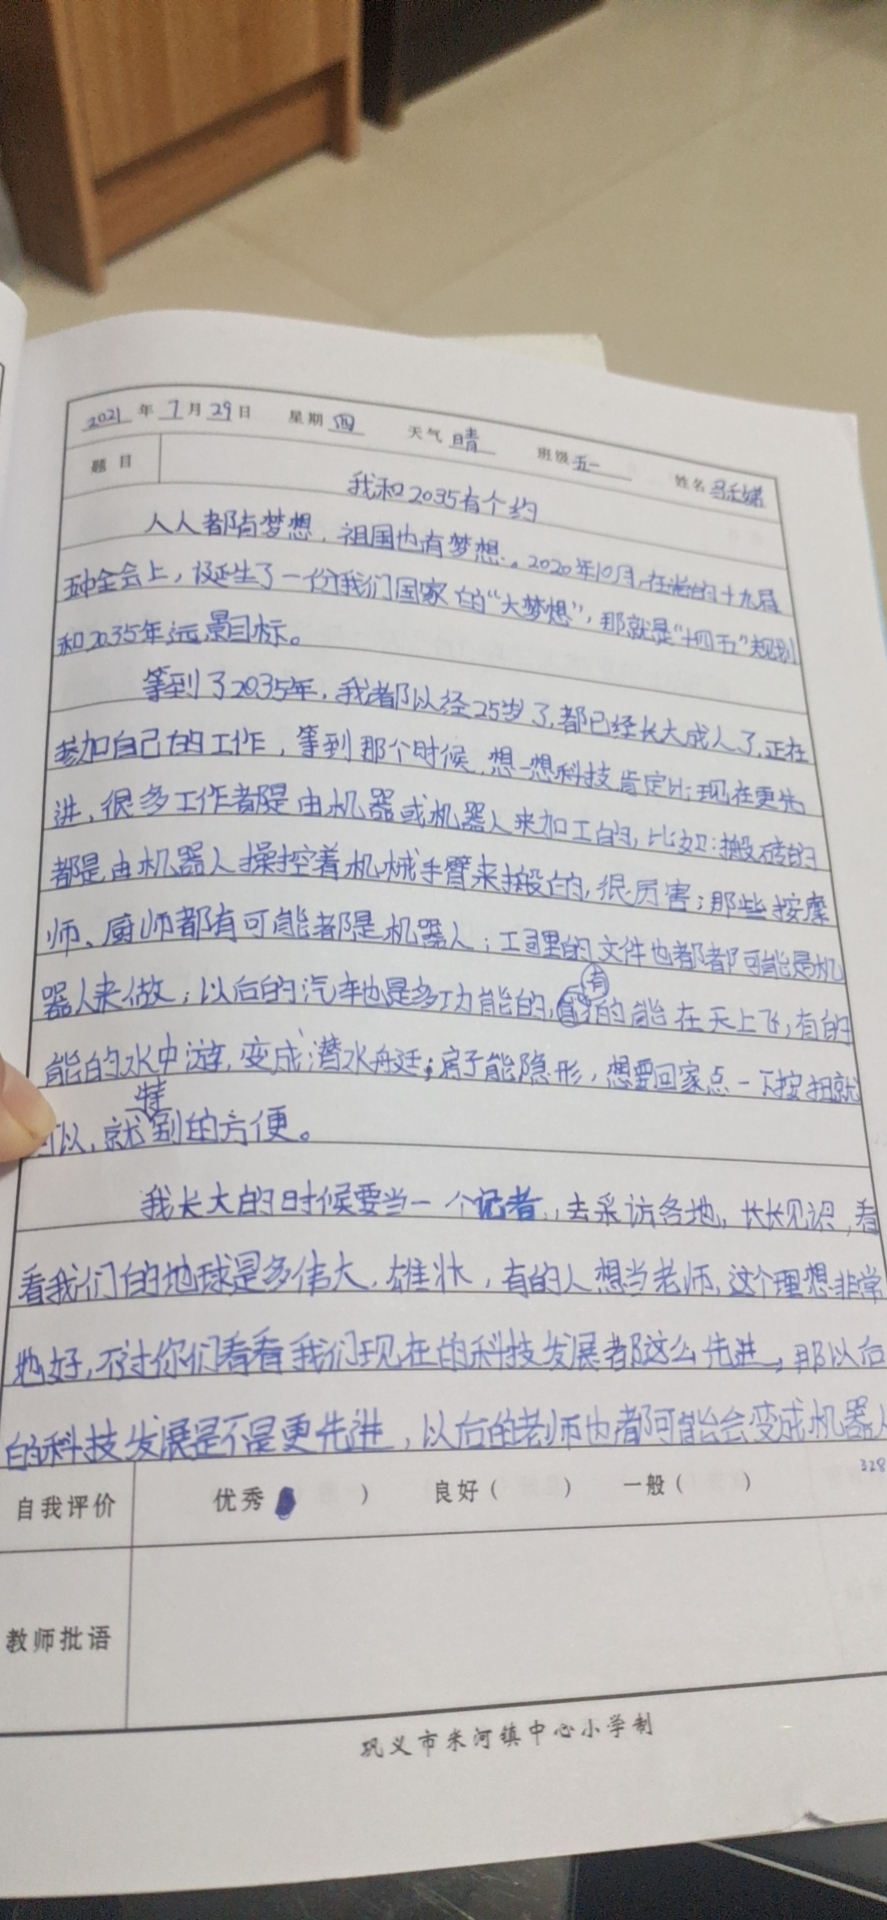 2021年7月29日 星期四 天气晴 班级五一 姓名马
题目
我和2035有个约
人人都有梦想，祖国也有梦想。2020年10月，在党的十九届
五中全会上，诞生了一份我们国家的“大梦想”，那就是“十四五”规划
和2035年远景目标。
等到了2035年，我都以经25岁了，都已经长大成人了，正在
参加自己的工作，等到那个时候，想一想科技肯定比现在更先
进，很多工作者都是由机器或机器人来加工的，比如：搬砖的
都是由机器人操控着机械手臂来搬的，很厉害；那些按摩
师、厨师都有可能都是机器人；工司里的文件也都都可能是机
器人来做；以后的汽车也是多功能的，有的能在天上飞，有的
能的水中游，变成潜水舟廷；房子能隐形，想要回家点一下按扭就
可以，就特别的方便。
我长大的时候要当一个记者，去采访各地，长长见识，看
看我们的地球是多伟大，雄壮，有的人想当老师，这个理想非常
地好，不过你们看看我们现在的科技发展都这么先进，那以后
的科技发展是不是更先进，以后的老师也都可能会变成机器人
328
自我评价 优秀 ） 良好（ ） 一般（ ）
教师批语
巩义市米河镇中心小学制